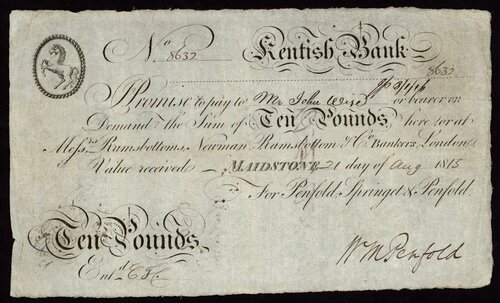 No 8632 Kentish Bank 8632
I Promise to pay to Mr John Wise or bearer on
Demand the Sum of Ten Pounds here or at
Messrs Ramsbottoms, Newman, Ramsbottom & Co. Bankers, London,
Value received Maidstone 21 day of Aug 1815
For Penfold, Springet & Penfold.
Ten Pounds.
Entd
Wm Penfold